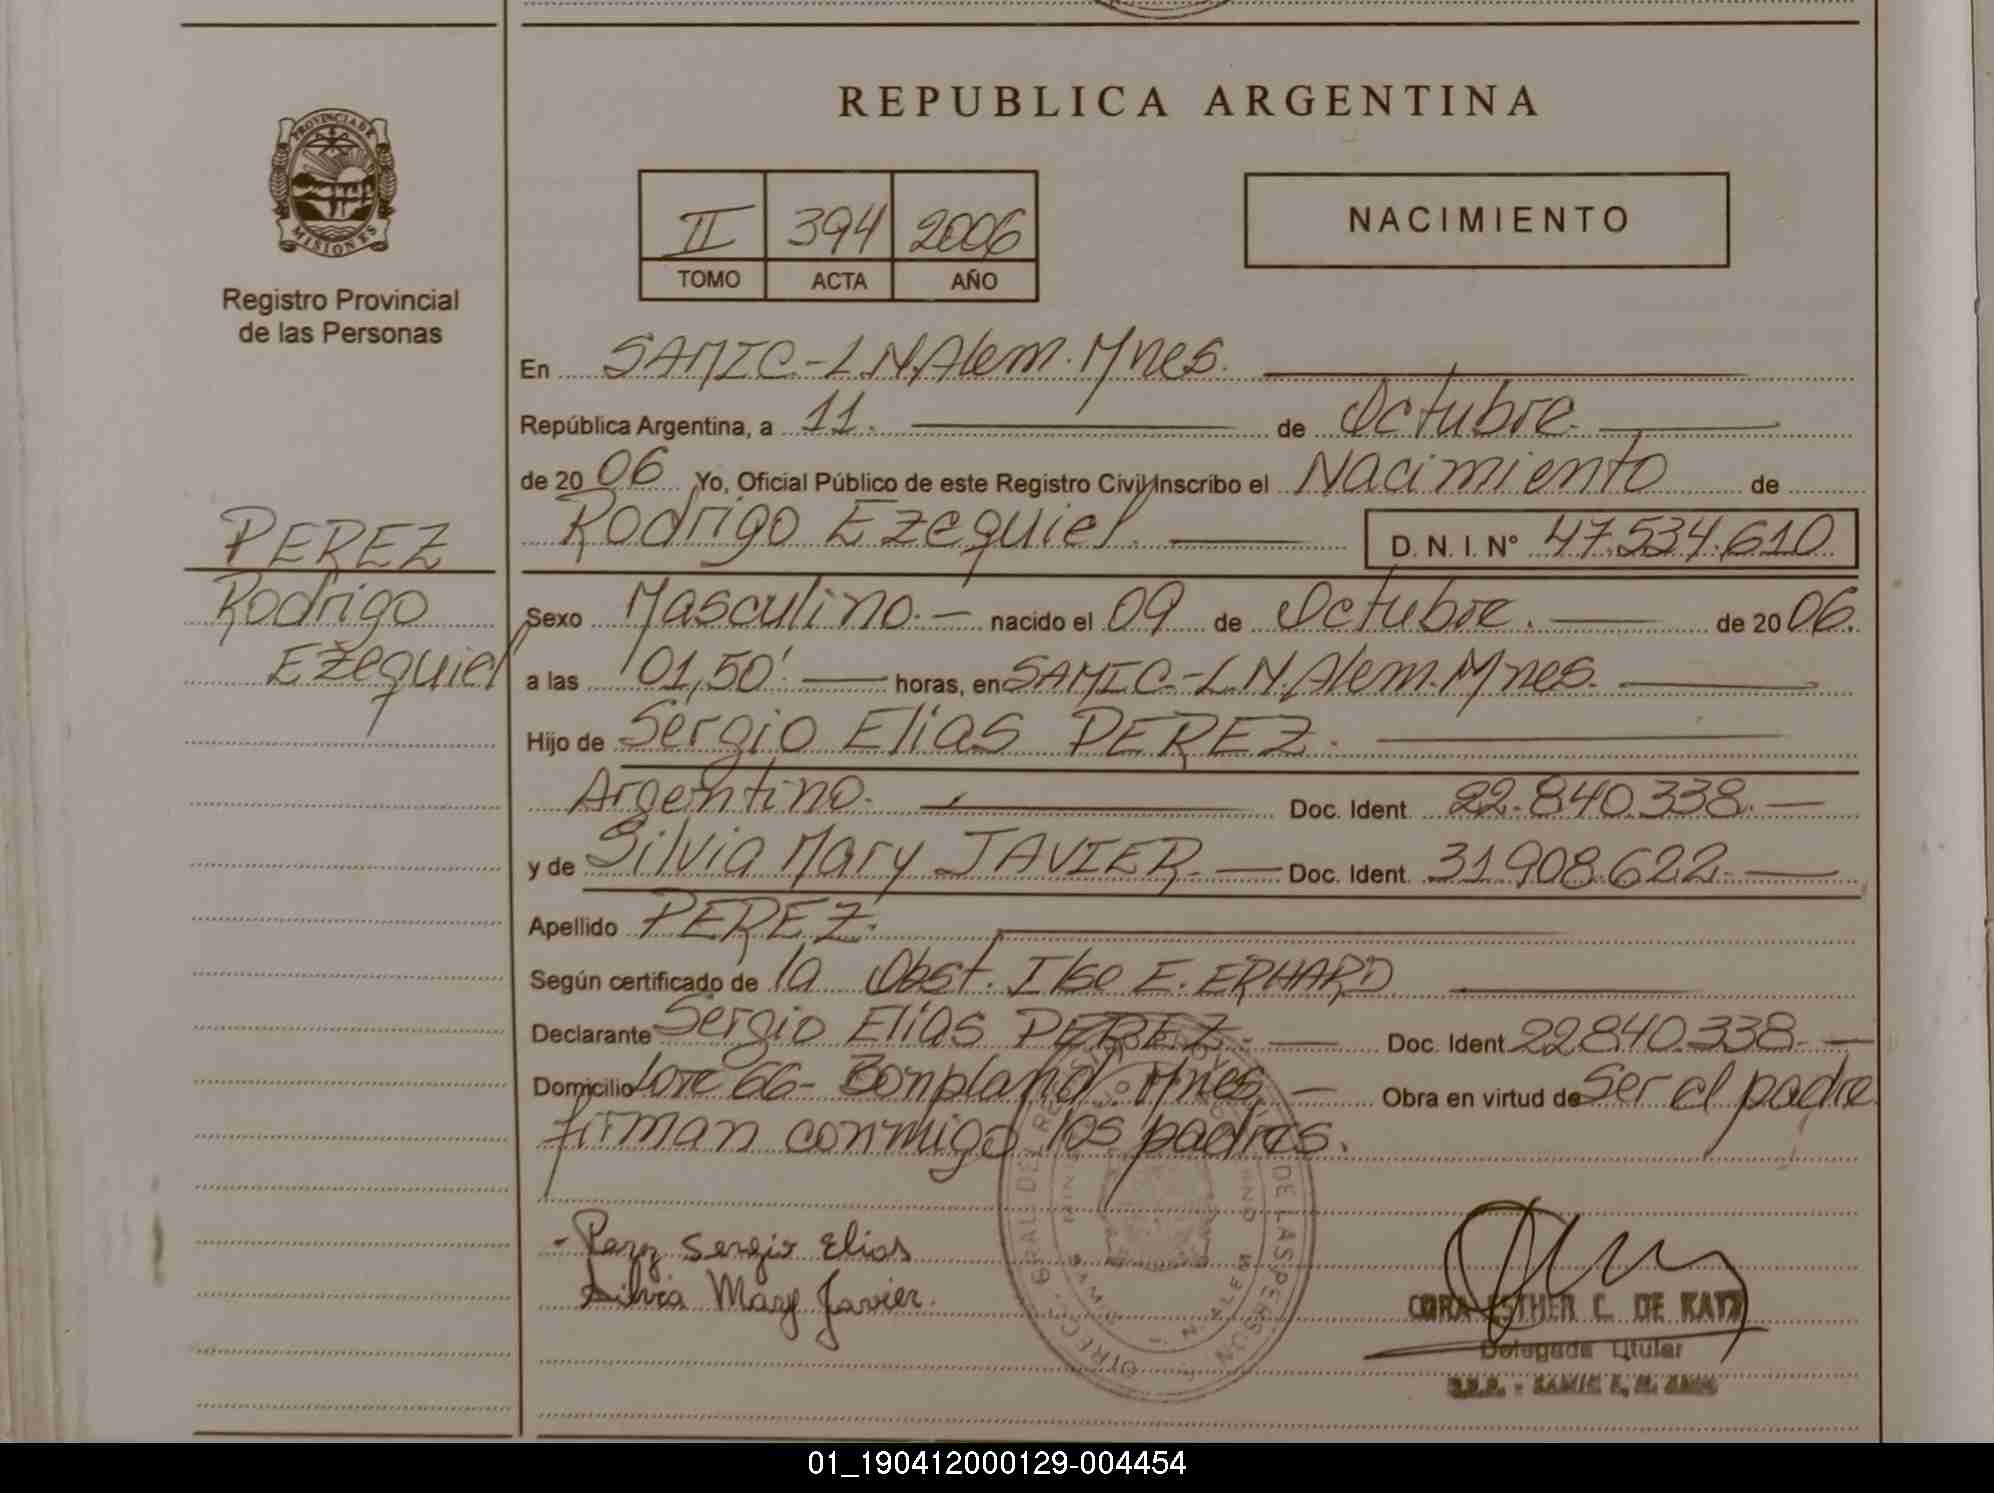 PROVINCIA DE
MISIONES
Registro Provincial
de las Personas
PEREZ
Rodrigo
Ezequiel
REPUBLICA ARGENTINA
II 394 2006
TOMO ACTA AÑO
NACIMIENTO
En SAMIC.-L.N.Alem.Mnes.
República Argentina, a 11. de Octubre.
de 2006 Yo, Oficial Público de este Registro Civil Inscribo el Nacimiento de
Rodrigo Ezequiel. D. N. I. N° 47.534.610
Sexo Masculino.- nacido el 09 de Octubre. de 2006.
a las 01,50' horas, en SAMIC.-L.N.Alem.Mnes.
Hijo de Sergio Elias PEREZ.
Argentino. Doc. Ident. 22.840.338.
y de Silvia Mary JAVIER. Doc. Ident. 31.908.622.
Apellido PEREZ.
Según certificado de la Obst. Ilse E. ERHARD
Declarante Sergio Elias PEREZ. Doc. Ident. 22840.338.
Domicilio Lote 66- Bonpland. Mnes. Obra en virtud de Ser el padre
firman conmigo los padres.
- Perez Sergio Elias
Silvia Mary Javier.
CORA ESTHER C. DE KATZ
Delegada Titular
01_190412000129-004454